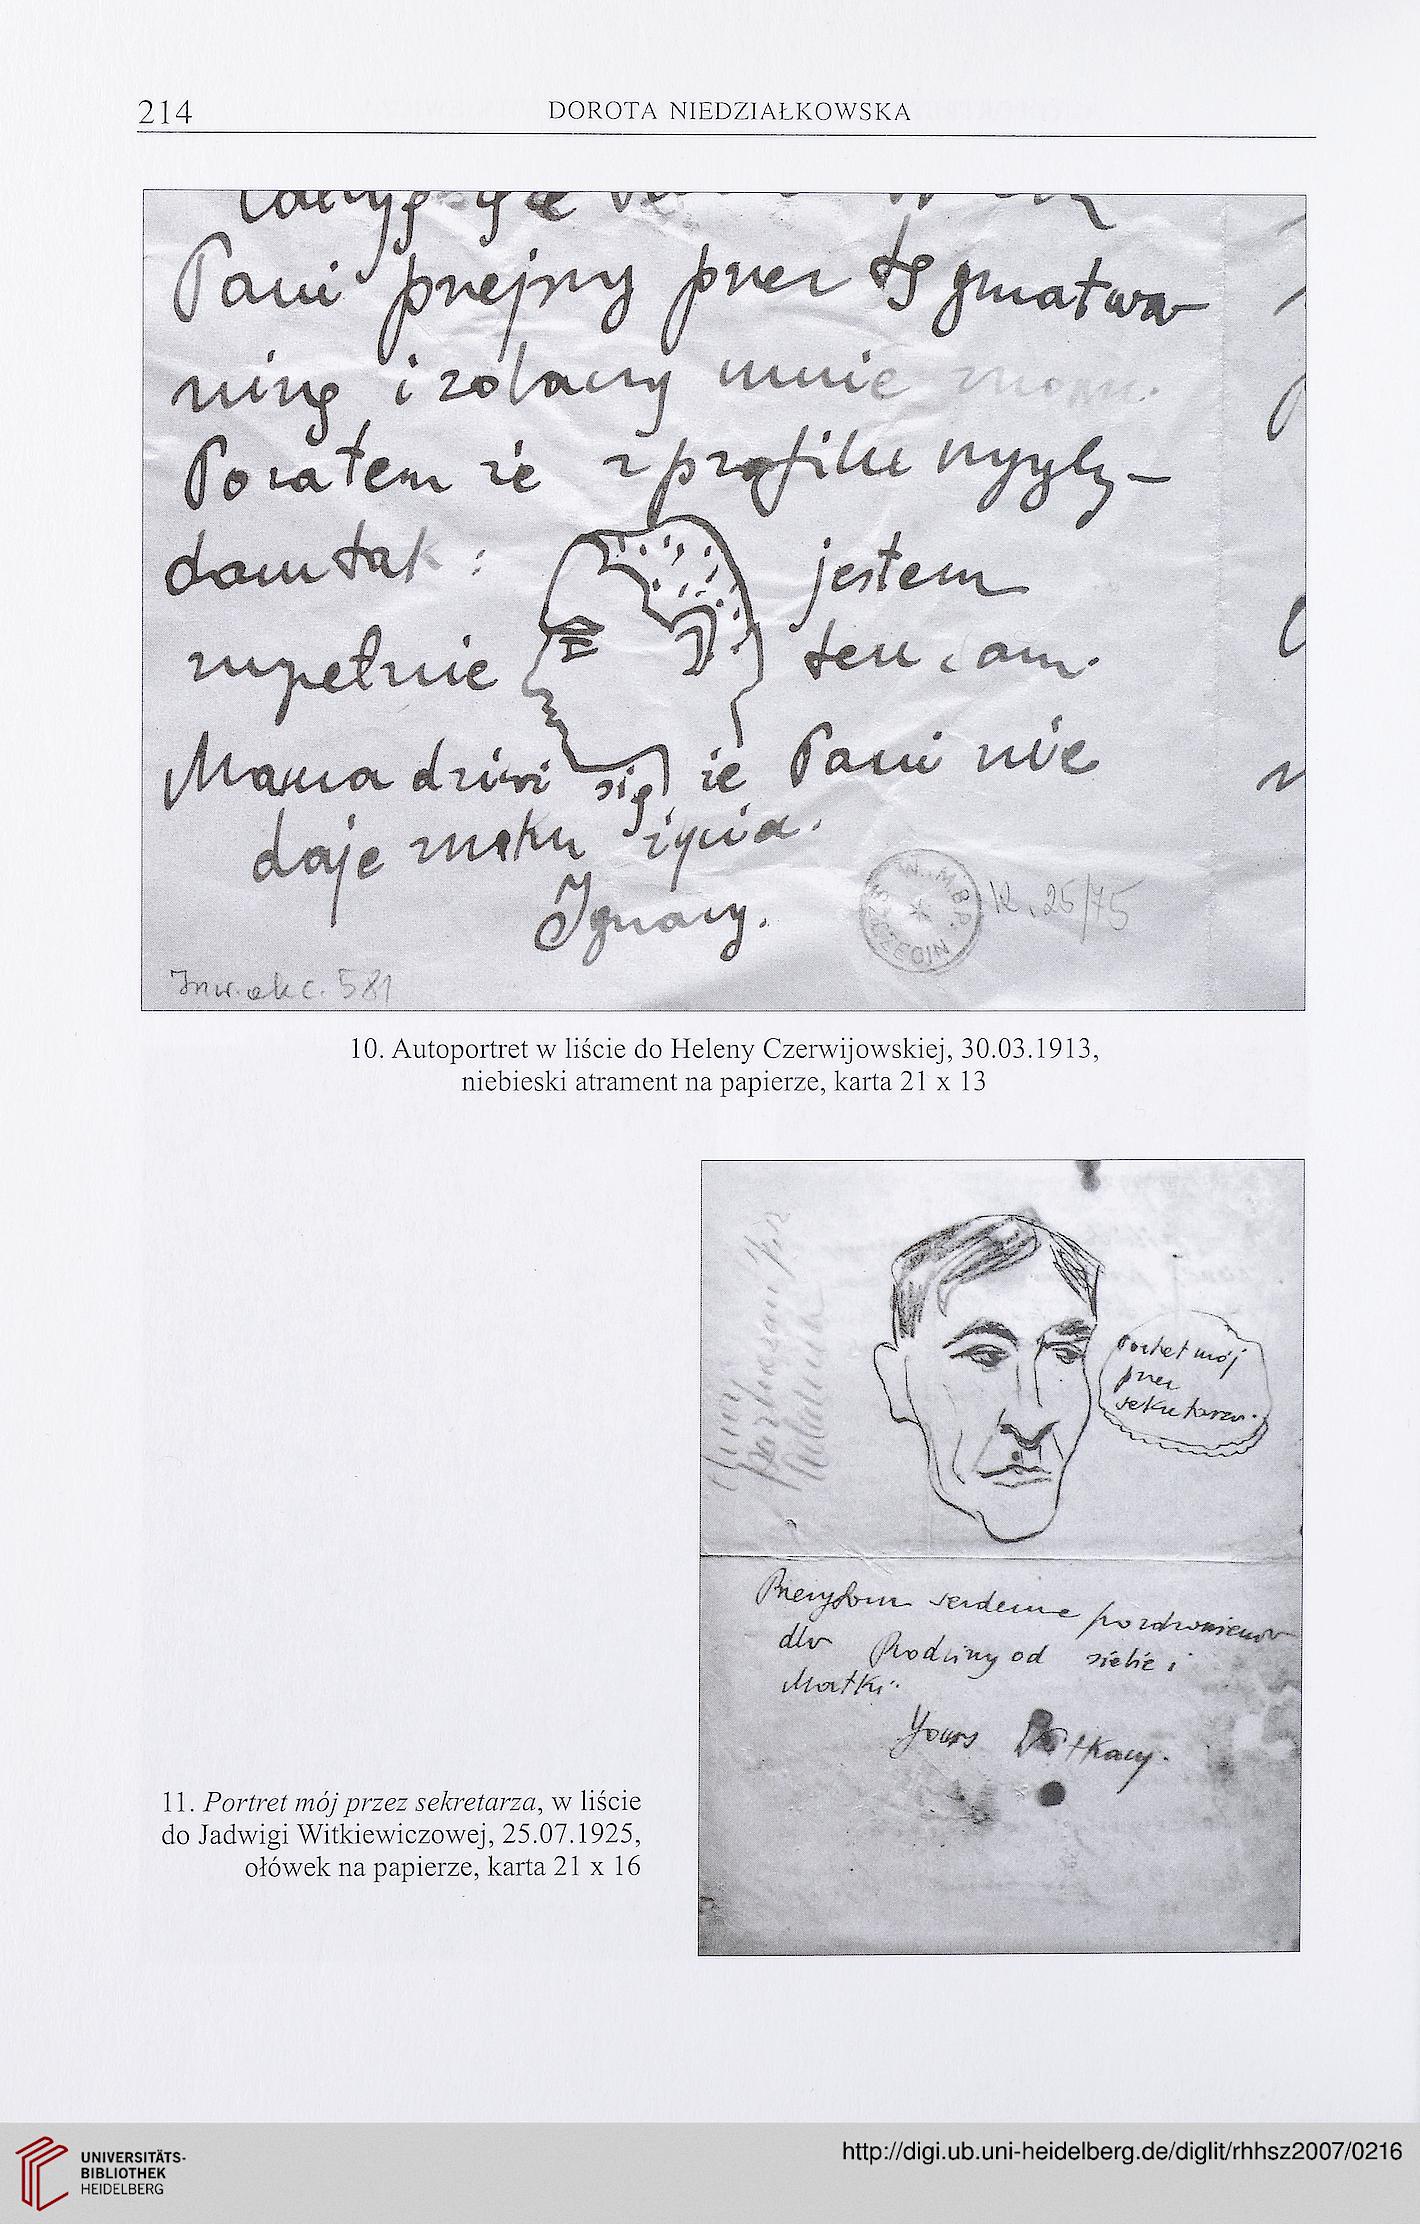 214
DOROTA NIEDZIAŁKOWSKA
Pani przejrzy przez tę gmatwa-
ninę i zobaczy mnie znowu.
Pozatem że z profilu wyglą-
dam tak : jestem
zupełnie ten sam.
Mama dziwi się że Pani nie
daje znaku życia.
Ignacy.
W. i M.B.P.
SZCZECIN
R. 25/75
Inw. akc. 581
10. Autoportret w liście do Heleny Czerwijowskiej, 30.03.1913,
niebieski atrament na papierze, karta 21 x 13
Portret mój
przez
sekretarza.
Przesyłam serdeczne pozdrowienia
dla Rodziny od siebie i
Matki.
Yours Witkacy.
11. Portret mój przez sekretarza, w liście
do Jadwigi Witkiewiczowej, 25.07.1925,
ołówek na papierze, karta 21 x 16
UNIVERSITÄTS-
BIBLIOTHEK
HEIDELBERG
http://digi.ub.uni-heidelberg.de/diglit/rhhsz2007/0216